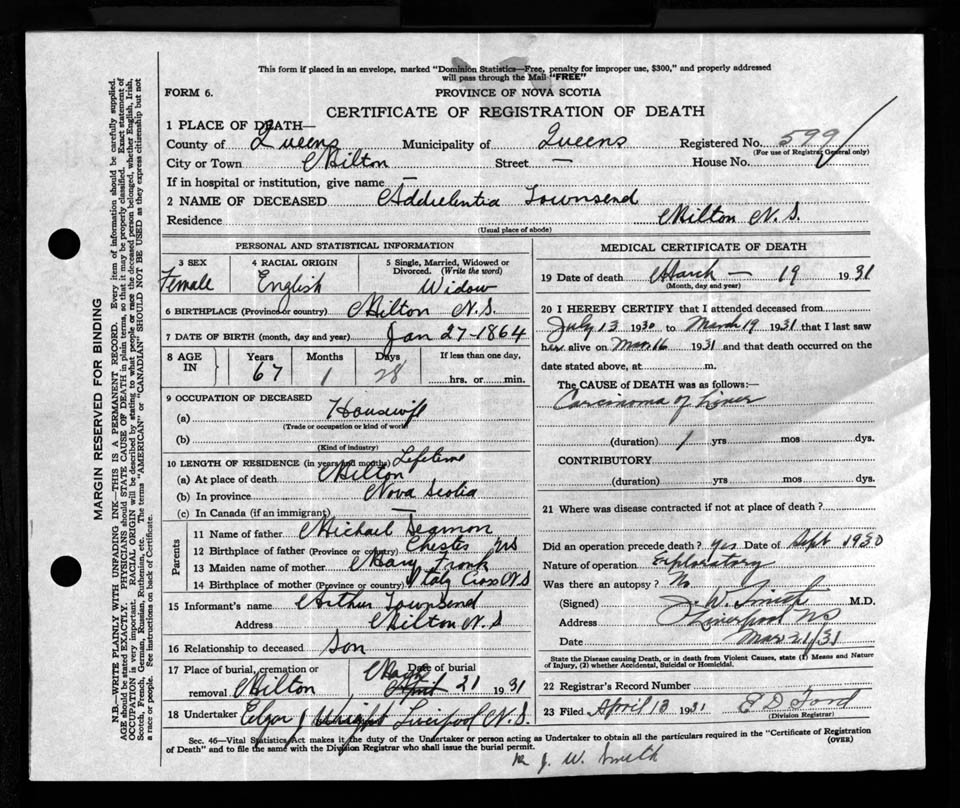 This form if placed in an envelope, marked "Dominion Statistics—Free, penalty for improper use, $300," and properly addressed
will pass through the Mail "FREE"
FORM 6.
PROVINCE OF NOVA SCOTIA
CERTIFICATE OF REGISTRATION OF DEATH
1 PLACE OF DEATH—
County of Queens Municipality of Queens Registered No. 599
(For use of Registrar General only)
City or Town Milton Street — House No.
If in hospital or institution, give name —
2 NAME OF DECEASED Townsend
Residence Milton N.S.
(Usual place of abode)
PERSONAL AND STATISTICAL INFORMATION
3 SEX 4 RACIAL ORIGIN 5 Single, Married, Widowed or
Divorced. (Write the word)
Female English Widow
6 BIRTHPLACE (Province or country) Milton N.S.
7 DATE OF BIRTH (month, day and year) Jan 27-1864
8 AGE IN Years Months Days If less than one day,
67 1 28 hrs. or min.
9 OCCUPATION OF DECEASED
(a) Housewife
(Trade or occupation or kind of work)
(b)
(Kind of industry)
10 LENGTH OF RESIDENCE (in years and months) Lifetime
(a) At place of death Milton
(b) In province Nova Scotia
(c) In Canada (if an immigrant) —
Parents
11 Name of father Michael Seamon
12 Birthplace of father (Province or country) Chester NS
13 Maiden name of mother Mary Fronk
14 Birthplace of mother (Province or country) Italy Cross N.S
15 Informant's name Arthur Townsend
Address Milton N.S
16 Relationship to deceased Son
17 Place of burial, cremation or Date of burial
March
removal Milton April 21 1931
18 Undertaker Edgar J Wright Liverpool N.S.
MEDICAL CERTIFICATE OF DEATH
19 Date of death March — 19 1931
(Month, day and year)
20 I HEREBY CERTIFY that I attended deceased from
July 13 1930 to March 19 1931 that I last saw
her alive on Mar 16 1931 and that death occurred on the
date stated above, at m.
The CAUSE OF DEATH was as follows:—
Carcinoma of Liver
(duration) 1 yrs mos dys.
CONTRIBUTORY
(duration) yrs mos dys.
21 Where was disease contracted if not at place of death?
Did an operation precede death? Yes Date of Sept 1930
Nature of operation Exploratory
Was there an autopsy? No
(Signed) J. W. Smith M.D.
Address Liverpool NS
Date Mar 21/31
State the Disease causing Death, or in death from Violent Causes, state (1) Means and Nature
of Injury, (2) whether Accidental, Suicidal or Homicidal.
22 Registrar's Record Number
23 Filed April 13 1931 E D Ford
(Division Registrar)
Sec. 46—Vital Statistics Act makes it the duty of the Undertaker or person acting as Undertaker to obtain all the particulars required in the "Certificate of Registration
of Death" and to file the same with the Division Registrar who shall issue the burial permit.
(OVER)
J. W. Smith
MARGIN RESERVED FOR BINDING
N.B.—WRITE PLAINLY WITH UNFADING INK—THIS IS A PERMANENT RECORD. Every item of information should be carefully supplied.
AGE should be stated EXACTLY. PHYSICIANS should STATE CAUSE OF DEATH in plain terms, so that it may be properly classified. Exact statement of
OCCUPATION is very important. RACIAL ORIGIN will be described by stating to what people or race the deceased person belonged, whether English, Irish,
Scotch, French, German, Russian, Ruthenian, etc. The terms "AMERICAN" or "CANADIAN" SHOULD NOT BE USED as they express citizenship but not
a race or people. See instructions on back of Certificate.